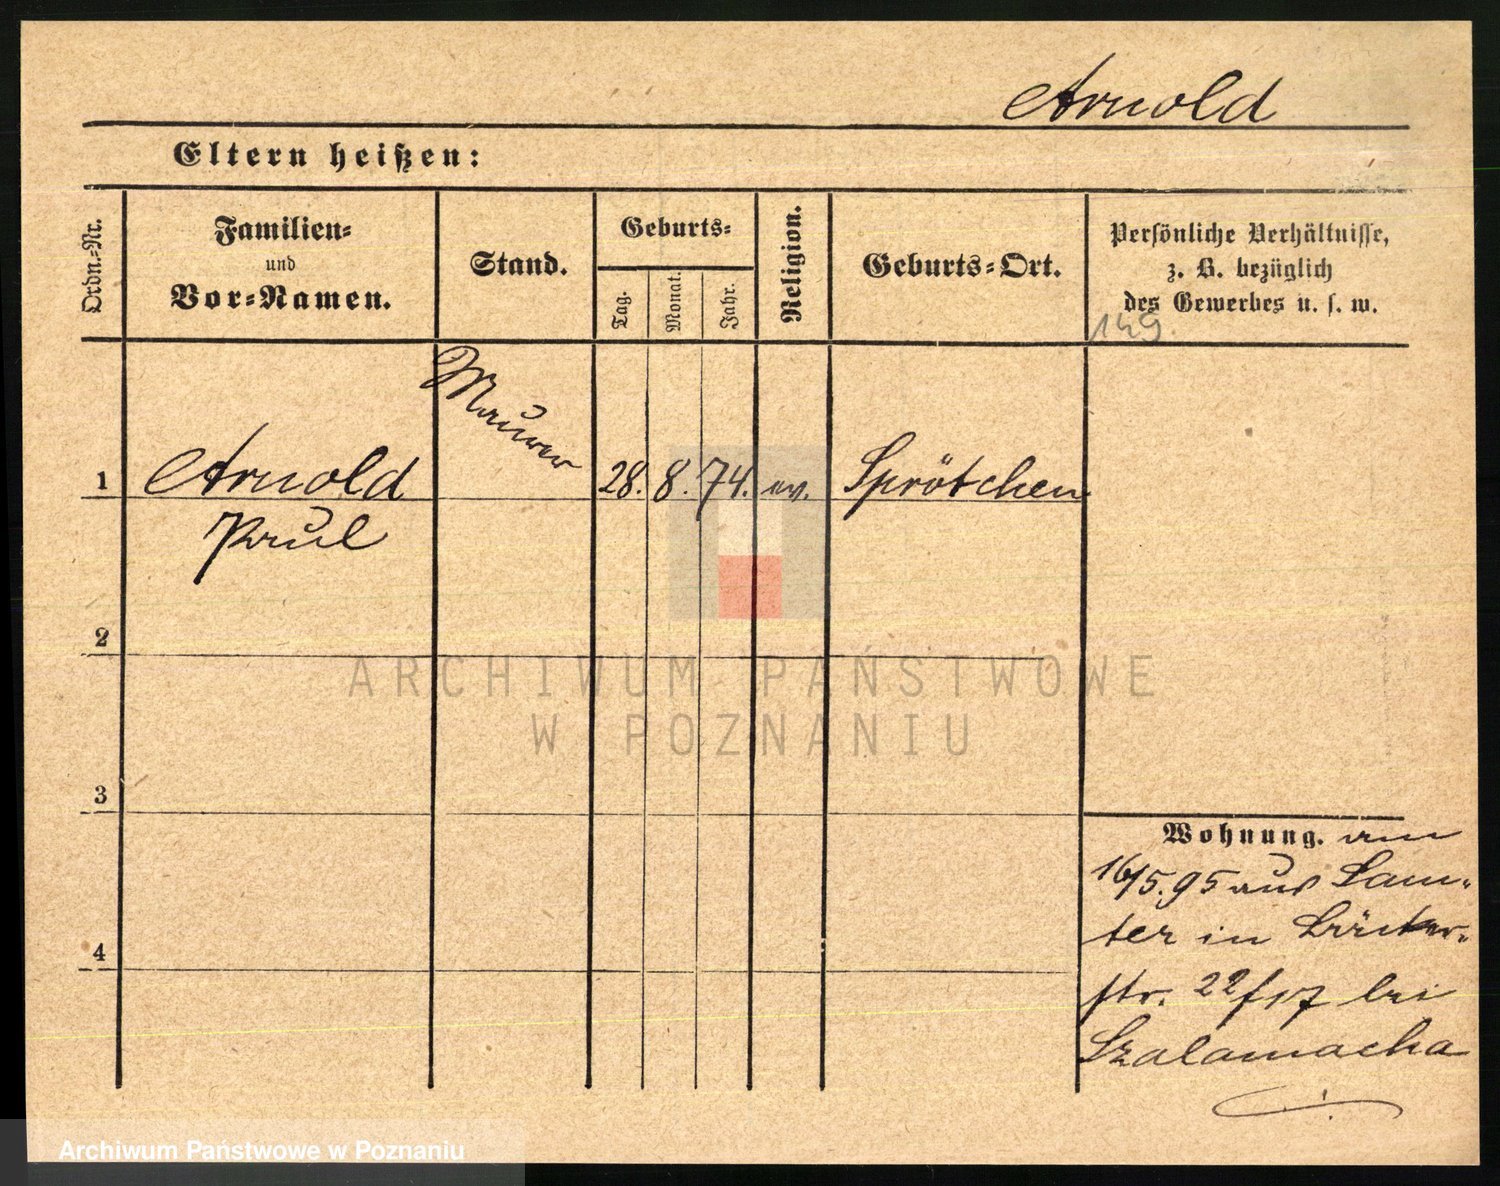 Arnold
Eltern heißen:
Ordn.-Nr.
Familien-
und
Vor-Namen.
Stand.
Geburts-
Tag.
Monat.
Jahr.
Religion.
Geburts-Ort.
Persönliche Verhältnisse,
z. B. bezüglich
des Gewerbes u. s. w.
149.
1 Arnold Maurer 28. 8. 74. ev. Sprötchen
Paul
2
3
4
Wohnung. am
16/5.95 aus Sam-
ter in Bäcker-
str. 22/ bei
Szalamacha
ARCHIWUM PAŃSTWOWE
W POZNANIU
Archiwum Państwowe w Poznaniu